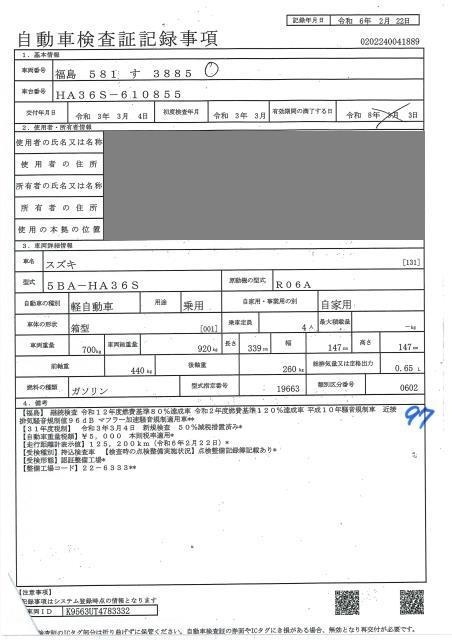 記録年月日 令和 6年 2月 22日
自動車検査証記録事項
0202240041889
1．基本情報
車両番号 福島 581 す 3885
車台番号 HA36S-610855
交付年月日 令和 3年 3月 4日 初度検査年月 令和 3年 3月 有効期間の満了する日 令和 8年 3月 3日
2．使用者・所有者情報
使用者の氏名又は名称
使用者の住所
所有者の氏名又は名称
所有者の住所
使用の本拠の位置
3．車両詳細情報
車名 スズキ [131]
型式 5BA-HA36S 原動機の型式 R06A
自動車の種別 軽自動車 用途 乗用 自家用・事業用の別 自家用
車体の形状 箱型 [001] 乗車定員 4人 最大積載量 -kg
車両重量 700kg 車両総重量 920kg 長さ 339cm 幅 147cm 高さ 147cm
前軸重 440kg 後軸重 260kg 総排気量又は定格出力 0.65 L
燃料の種類 ガソリン 型式指定番号 19663 類別区分番号 0602
4．備考
【福島】 継続検査 令和12年度燃費基準80％達成車 令和2年度燃費基準120％達成車 平成10年騒音規制車 近接
排気騒音規制値96dB マフラー加速騒音規制適用車**
97
【31年度税制】 令和3年3月4日 新規検査 50％減税措置済み*
【自動車重量税額】¥5,000 本則税率適用*
【走行距離計表示値】125,200km（令和6年2月22日）*
【受検種別】持込検査車 【検査時の点検整備実施状況】点検整備記録簿記載あり*
【受検形態】認証整備工場*
【整備工場コード】22-6333**
【注意事項】
記録事項はシステム登録時点の情報となります
車両ID K9563UT4783332
検査証のICタグ部分は折り曲げずに保管ください。自動車検査証の券面やICタグにき損がある場合、無効となり再交付が必要です。